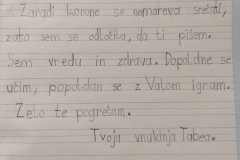 Zaradi korone se nemoreva srečati,
zato sem se odločila, da ti pišem.
Sem vredu in zdrava. Dopoldne se
učim, popoldan se z Valom igram.
Zelo te pogrešam.
Tvoja vnukinja Tabea.